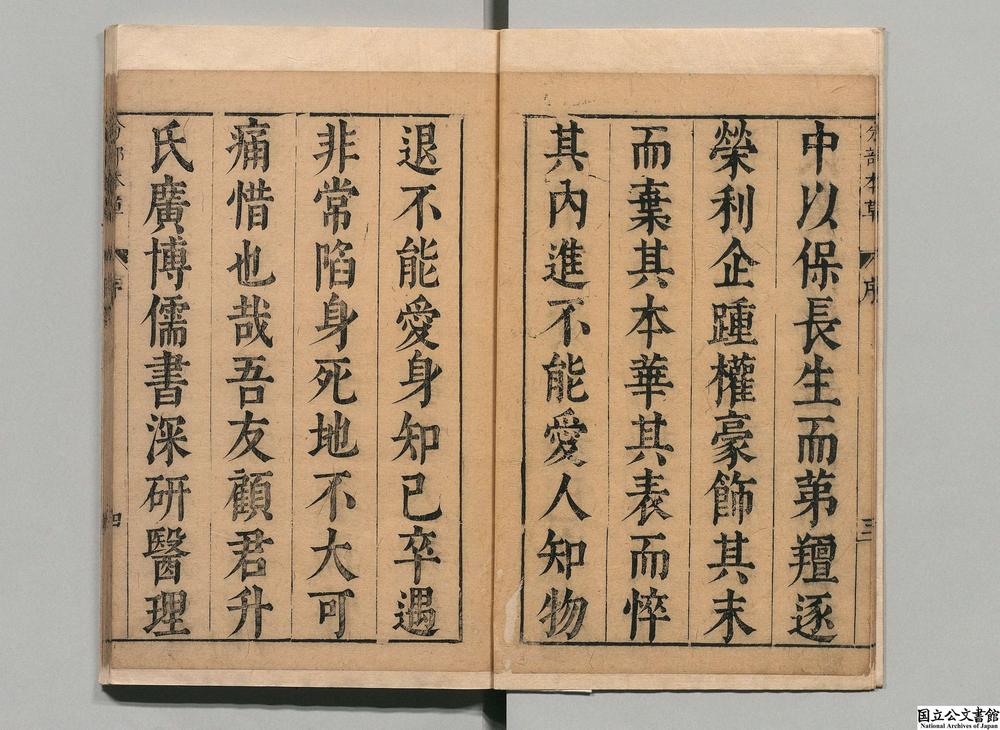 中以保長生而第羶逐
榮利企踵權豪飾其末
而棄其本華其表而悴
其內進不能愛人知物
退不能愛身知己卒遇
非常陷身死地不大可
痛惜也哉吾友顧君升
氏廣博儒書深研醫理
分部本草
序
三
国立公文書館
National Archives of Japan